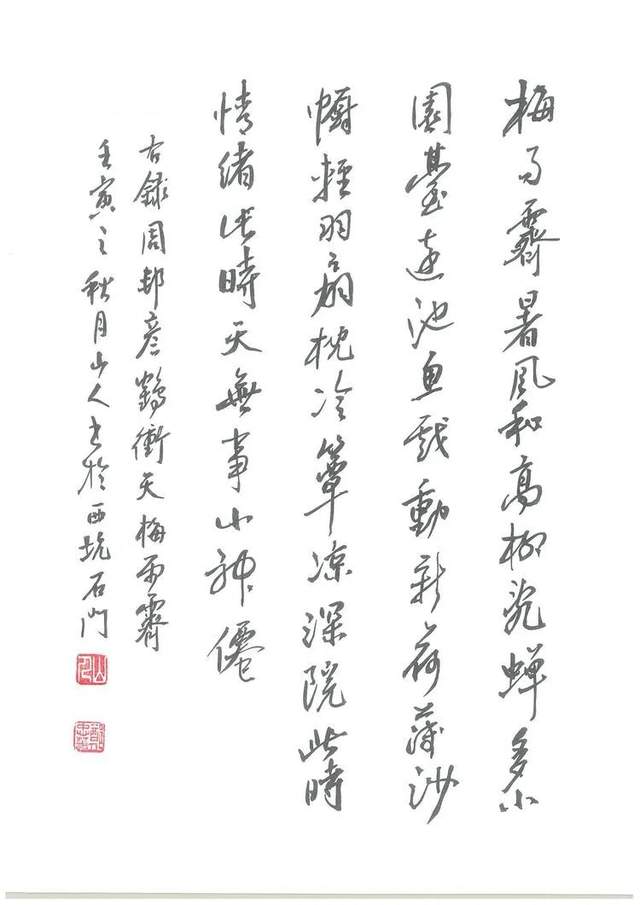 梅雨霽暑風和高柳亂蟬多小
園臺遠池魚戲動新荷薄沙
幮輕羽扇枕冷簟凉深院此時
情緒此時天無事小神僊
右録周邦彦鶴衝天梅雨霽
壬寅之秋月山人書於西坑石門